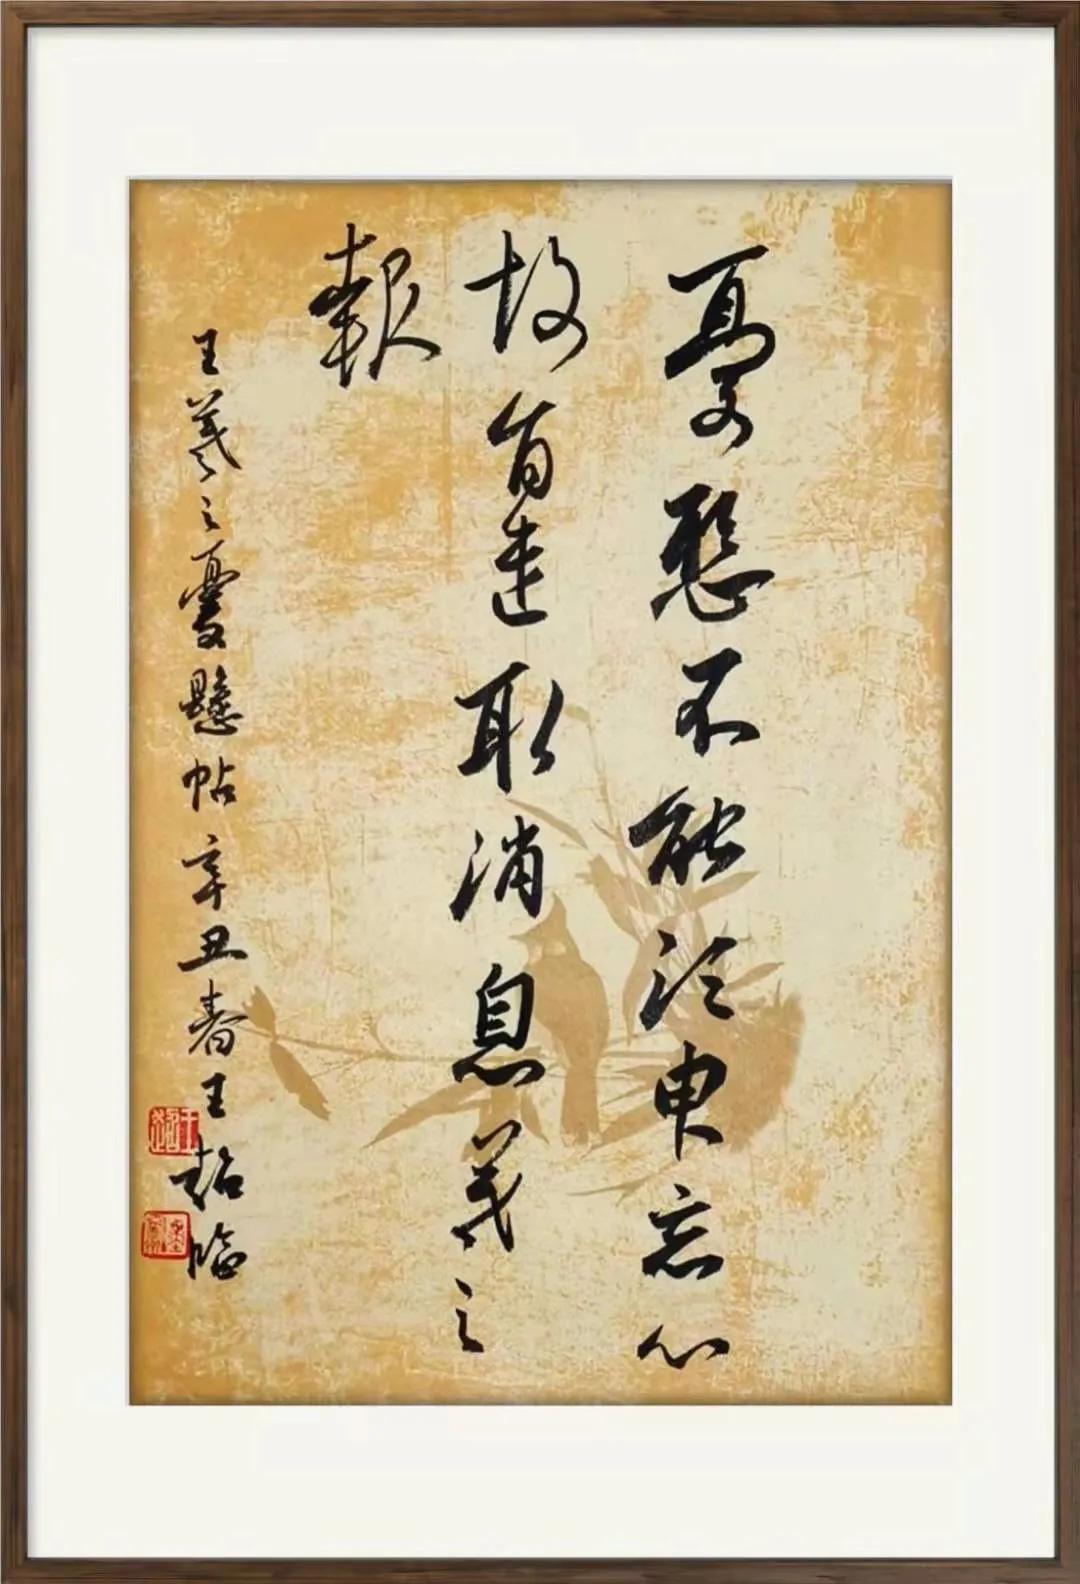 憂懸不能須臾忘心
故旨遣取消息羲之
報
王羲之憂懸帖辛丑春王超臨